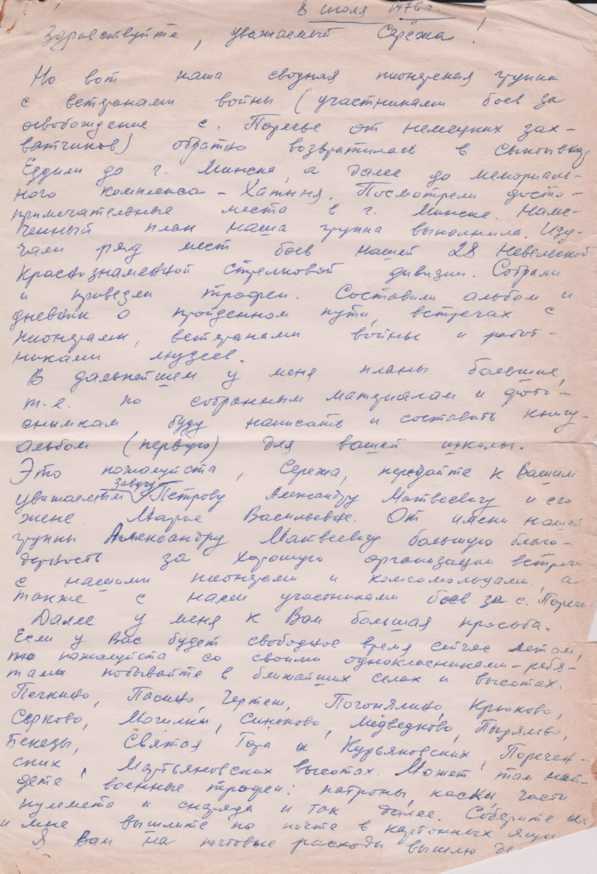 8 июля 1976г.
Здравствуйте, уважаемый Серёжа!
Но вот наша сводная пионерская группа
с ветеранами войны (участниками боев за
освобождение с. Поречье от немецких зах-
ватчиков) обратно возвратилась в Сыктывкар
Ездили до г. Минска, а далее до мемориаль-
ного комплекса - Хатыня. Посмотрели досто-
примечательные места в г. Минске. Наме-
ченный план наша группа выполнила. Изу-
чали ряд мест боев нашей 28 Невельской
Краснознаменной стрелковой дивизии. Собрали
и привезли трофеи. Составили альбом и
дневник о пройденном пути, встречах с
пионерами, ветеранами войны и работ-
никами музеев.
В дальнейшем у меня планы большие,
т.е. по собранным материалам и фото-
снимкам буду написать и составить книгу-
альбом (первую) для вашей школы.
Это пожалуйста, Сережа, передайте к Вашим
уважаемым завучу Петрову Александру Матвеевичу и его
жене Марье Васильевне. От имени нашей
группы Александру Матвеевичу большую благо-
дарность за хорошую организацию встречи
с нашими пионерами и комсомольцами, а
также с нами участниками боев за с. Поречье
Далее у меня к Вам большая просьба.
Если у Вас будет свободное время сейчас летом,
то пожалуйста со своими одноклассниками-ребя-
тами побывайте в ближайших селах и высотах.
Печкино, Пасино, Чертеж, Погонялино, Крюково,
Серково, Могилки, Синяково, Медведково,
Бенезы, Святая Гора и Курьяновских, Поречен-
ских, Мартьяновских высотах. Может там най-
дете военные трофеи: патроны, каски, части
пулемета и снаряда и так далее. Соберите их
и мне вышлите по почте в картонных
Я Вам на почтовые расходы вышлю